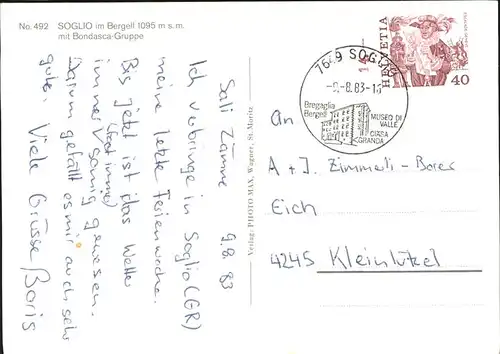 No. 492 SOGLIO im Bergell 1095 m s. m.
mit Bondasca-Gruppe
9.8.83
Sali Zämme
Ich verbringe in Soglio (GR)
meine letzte Ferienwoche.
Bis jetzt ist das Wetter
(fast immer)
immer sonnig gewesen.
Darum gefällt es mir auch sehr
gut. Viele Grüsse Boris
Verlag: PHOTO MAX, Wagner, St. Moritz
7649 SOGLIO
-8.83-1
Bregaglia
Bergell
MUSEO DI
VALLE
CIÄSA
GRANDA
HELVETIA
40
An
A + J. Zimmerli-Borer
Eich
4245 Kleinlützel